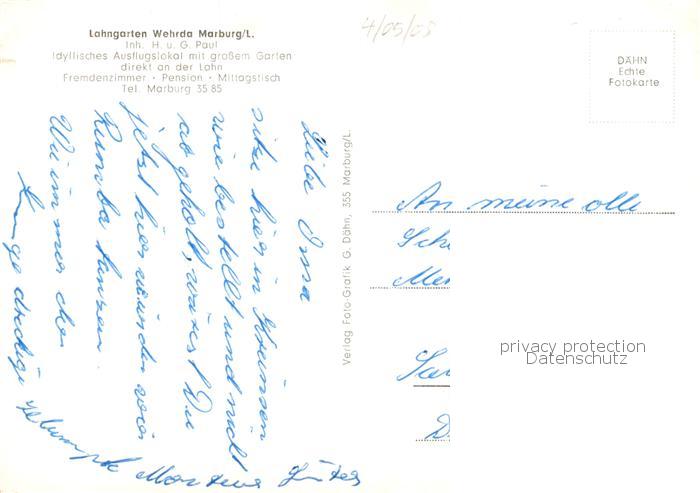 Lahngarten Wehrda Marburg/L.
Inh. H. u. G. Paul
Idyllisches Ausflugslokal mit großem Garten
direkt an der Lahn
Fremdenzimmer · Pension · Mittagstisch
Tel. Marburg 35 85
4/05/05
DÄHN
Echte
Fotokarte
Liebe Oma
sitze hier in
wie bestellt und nicht
abgeholt, wärest Du
jetzt hier würden wir
Rumba tanzen.
Wie immer der
dreckige
Verlag Foto-Grafik G. Dähn, 355 Marburg/L.
An meine olle
Sch
privacy protection
Datenschutz